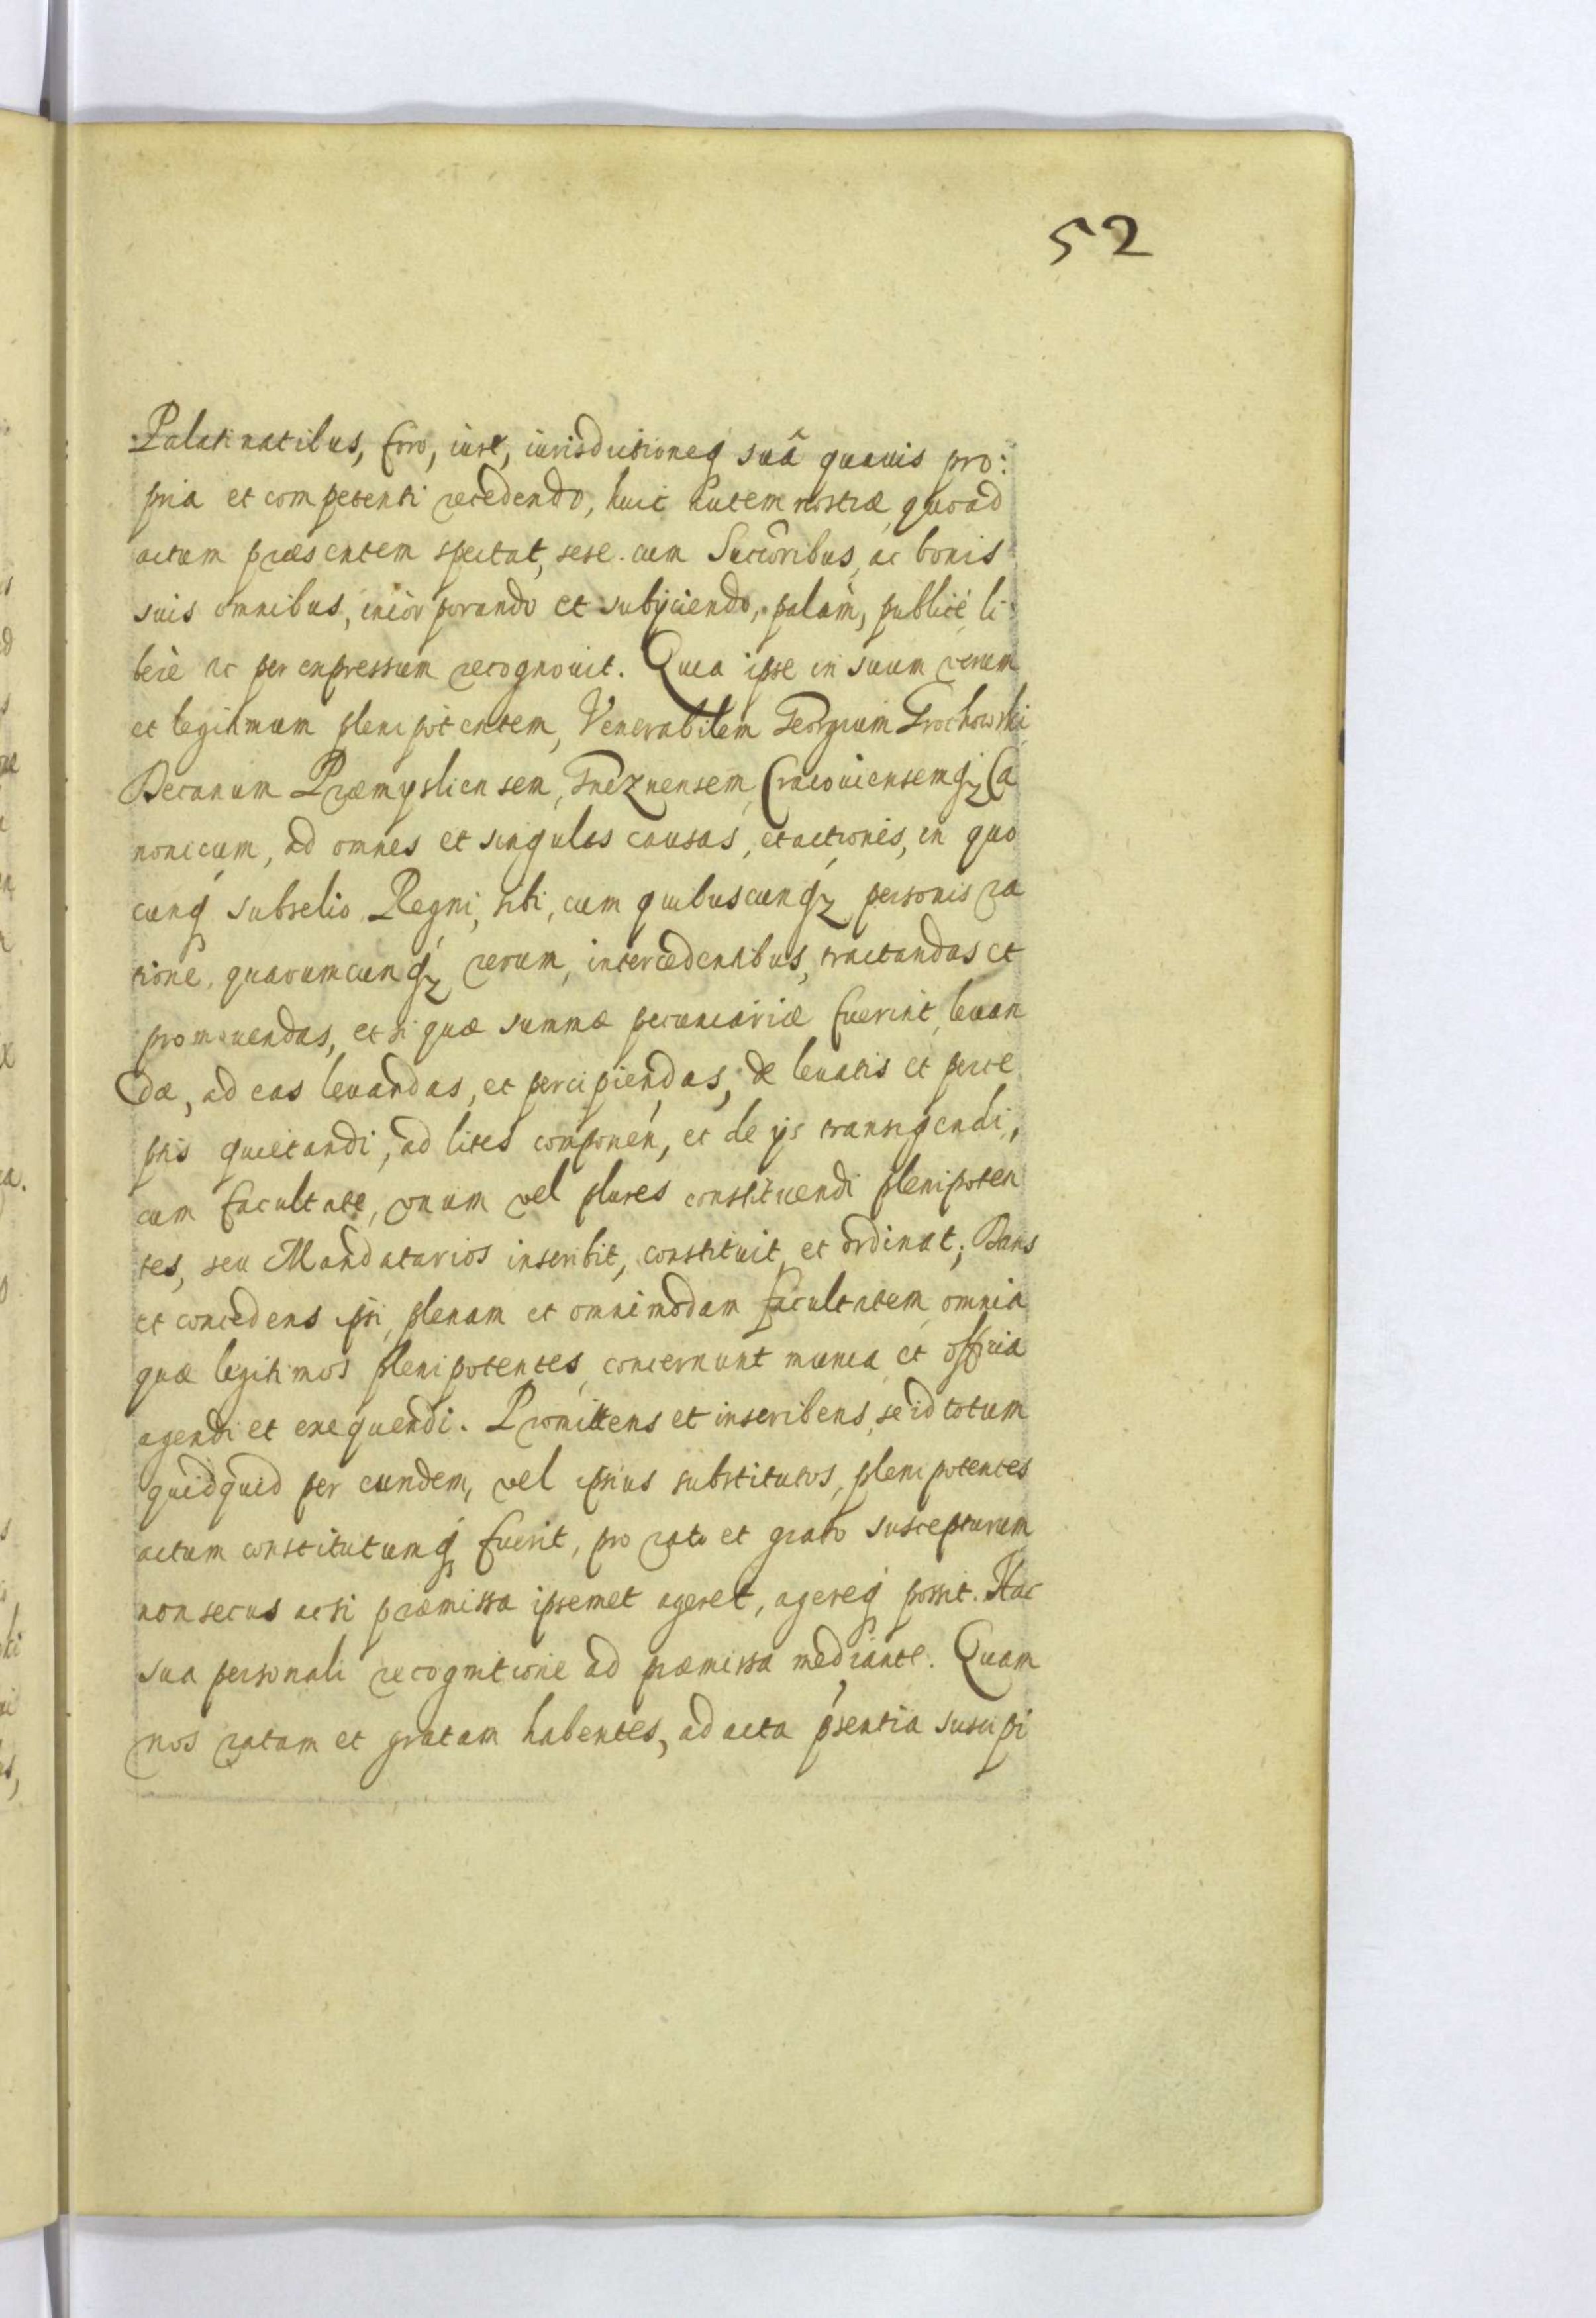 52
Palatinatibus, foro, iure, iurisdictioneq suâ quauis pro:
pria et competenti recedendo, huic autem nostræ, quoad
actum præsentem spectat, sese cum Succoribus, ac bonis
suis omnibus, incorporando et subÿciendo, palàm, publicè, li:
berè ac per expressum recognouit. Quia ipse in suum verum
et legitimum plenipotentem, Venerabilem Georgium Grochowski
Decanum Præmysliensem, Gneznensem, Cracouiensemq Ca
nonicum, ad omnes et singulas causas, et actiones, in quo
cunq subselio Regni, sibi, cum quibuscunq personis ra
tione, quarumcunq rerum, intercedentibus, tractandas et
promouendas, et si quæ summæ pecuniariæ fuerint, leuan
dæ, ad eas leuandas, et percipiendas, de leuatis et perce
ptis quietandi, ad lites componen, et de ÿs transigendi,
cum facultate, vnum vel plures constituendi plenipoten
tes, seu Mandatarios inscribit, constituit, et ordinat; Dans
et concedens ipsi, plenam et omnimodam facultatem, omnia
quæ legitimos plenipotentes, concernunt munia et officia
agendi et exequendi. Promittens et inscribens, se id totum
quidquid per eundem, vel ipsius substitutos, plenipotentes
actum constitutumq fuerit, pro rato et grato suscepturum
non secus acsi præmissa ipsemet ageret, agereq possit. Hac
sua personali recognitione ad præmissa mediante. Quam
nos ratam et gratam habentes, ad acta pśentia suscipi